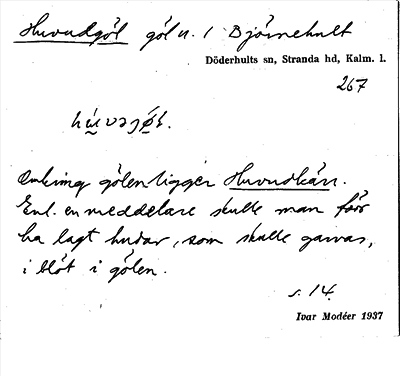 Huvudgöl göl n. i Björnehult
Döderhults sn, Stranda hd, Kalm. l.
267
Omkring gölen ligger Huvudkärr.
Enl. en meddelare skulle man förr
ha lagt hudar, som skulle garvas,
i blöt i gölen.
s. 14.
Ivar Modéer 1937